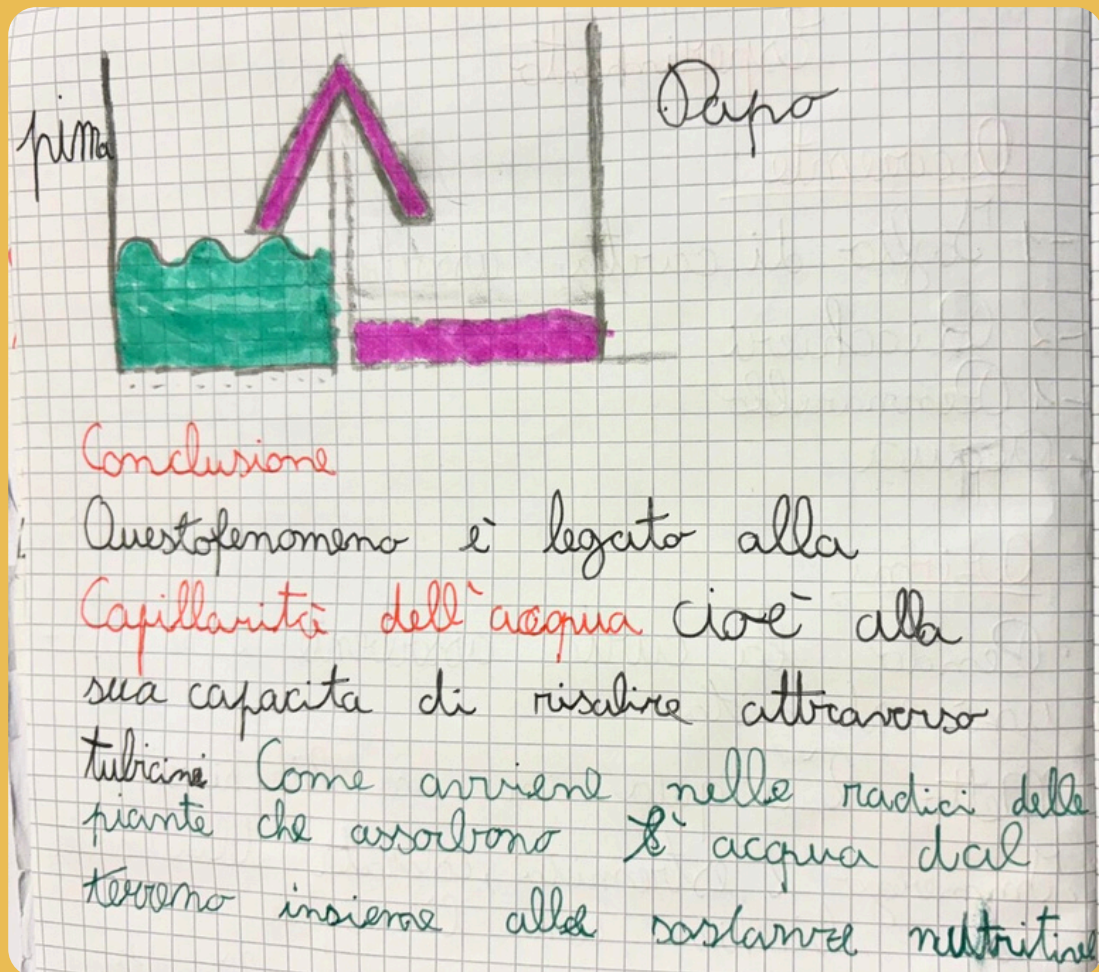 pima
Dapo
Conclusione
Questofenomeno è legato alla
Capillarità dell'acqua cioè alla
sua capacita di risalire attraverso
tubicini Come avviene nelle radici delle
piante che assorbono l'acqua dal
terreno insieme alle sostanze nutritive